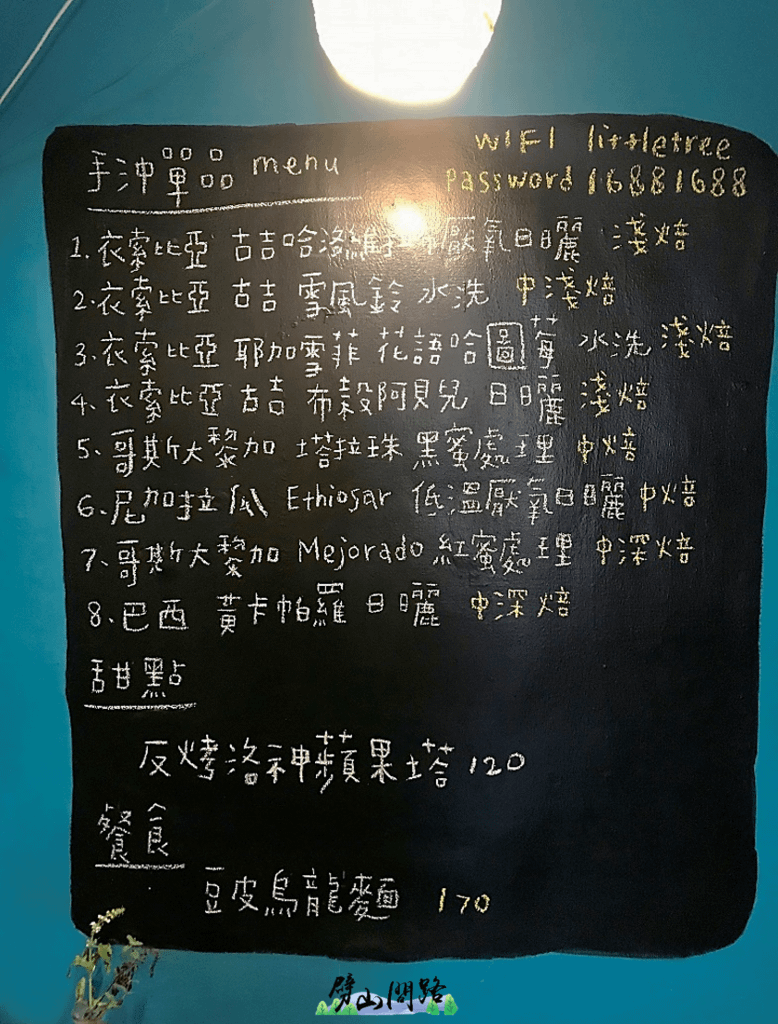 手沖單品 menu
WIFI littletree
password 16881688
1. 衣索比亞 古吉哈洛維拉 厭氧日曬 淺焙
2. 衣索比亞 古吉 雪風鈴 水洗 中淺焙
3. 衣索比亞 耶加雪菲 花語哈圖莓 水洗 淺焙
4. 衣索比亞 古吉 布穀阿貝兒 日曬 淺焙
5. 哥斯大黎加 塔拉珠 黑蜜處理 中焙
6. 尼加拉瓜 Ethiosar 低溫厭氧日曬 中焙
7. 哥斯大黎加 Mejorado 紅蜜處理 中深焙
8. 巴西 黃卡帕羅 日曬 中深焙
甜點
反烤洛神蘋果塔 120
餐食
豆皮烏龍麵 170
劈山問路